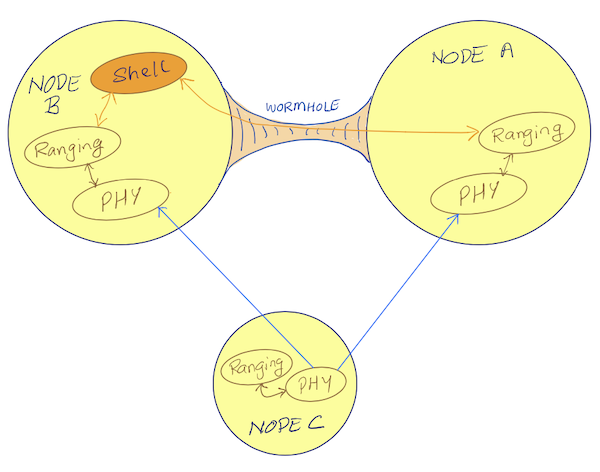 NODE
B
Shell
Ranging
PHY
WORMHOLE
NODE A
Ranging
PHY
Ranging
PHY
NODE C